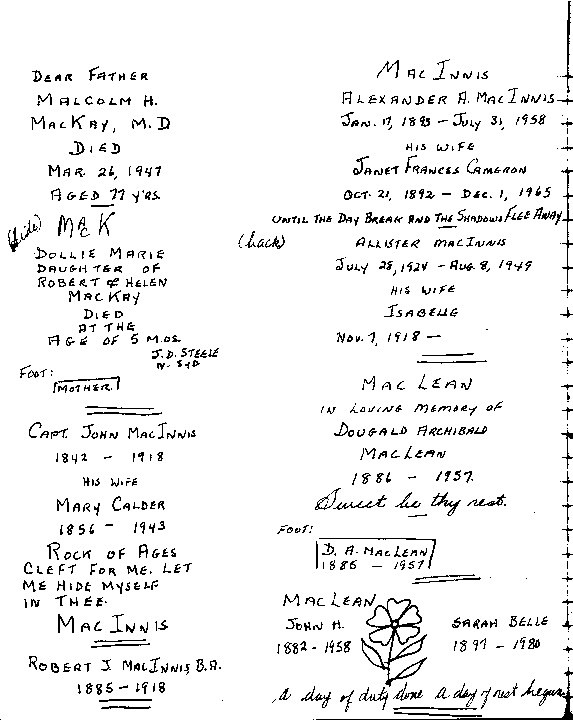 DEAR FATHER
MALCOLM H.
MACKAY, M.D
DIED
MAR. 26, 1947
AGED 77 Y'RS.
(side) MACK
DOLLIE MARIE
DAUGHTER OF
ROBERT & HELEN
MACKAY
DIED
AT THE
AGE OF 5 MOS.
J.D. STEELE
N. SYD
FOOT:
MOTHER
CAPT. JOHN MACINNIS
1842 - 1918
HIS WIFE
MARY CALDER
1856 - 1943
ROCK OF AGES
CLEFT FOR ME. LET
ME HIDE MYSELF
IN THEE.
MACINNIS
ROBERT J. MACINNIS, B.A.
1885 - 1918
MACINNIS
ALEXANDER A. MACINNIS
JAN. 17, 1893 - JULY 31, 1958
HIS WIFE
JANET FRANCES CAMERON
OCT. 21, 1892 - DEC. 1, 1965
UNTIL THE DAY BREAK AND THE SHADOWS FLEE AWAY
(back) ALLISTER MACINNIS
JULY 28, 1924 - AUG. 8, 1949
HIS WIFE
ISABELLE
NOV. 7, 1918 -
MACLEAN
IN LOVING MEMORY OF
DOUGALD ARCHIBALD
MACLEAN
1886 - 1957.
Sweet be thy rest.
FOOT:
D. A. MACLEAN
1886 - 1957
MACLEAN
JOHN H. SARAH BELLE
1882 - 1958 1897 - 1980
A day of duty done A day of rest begun